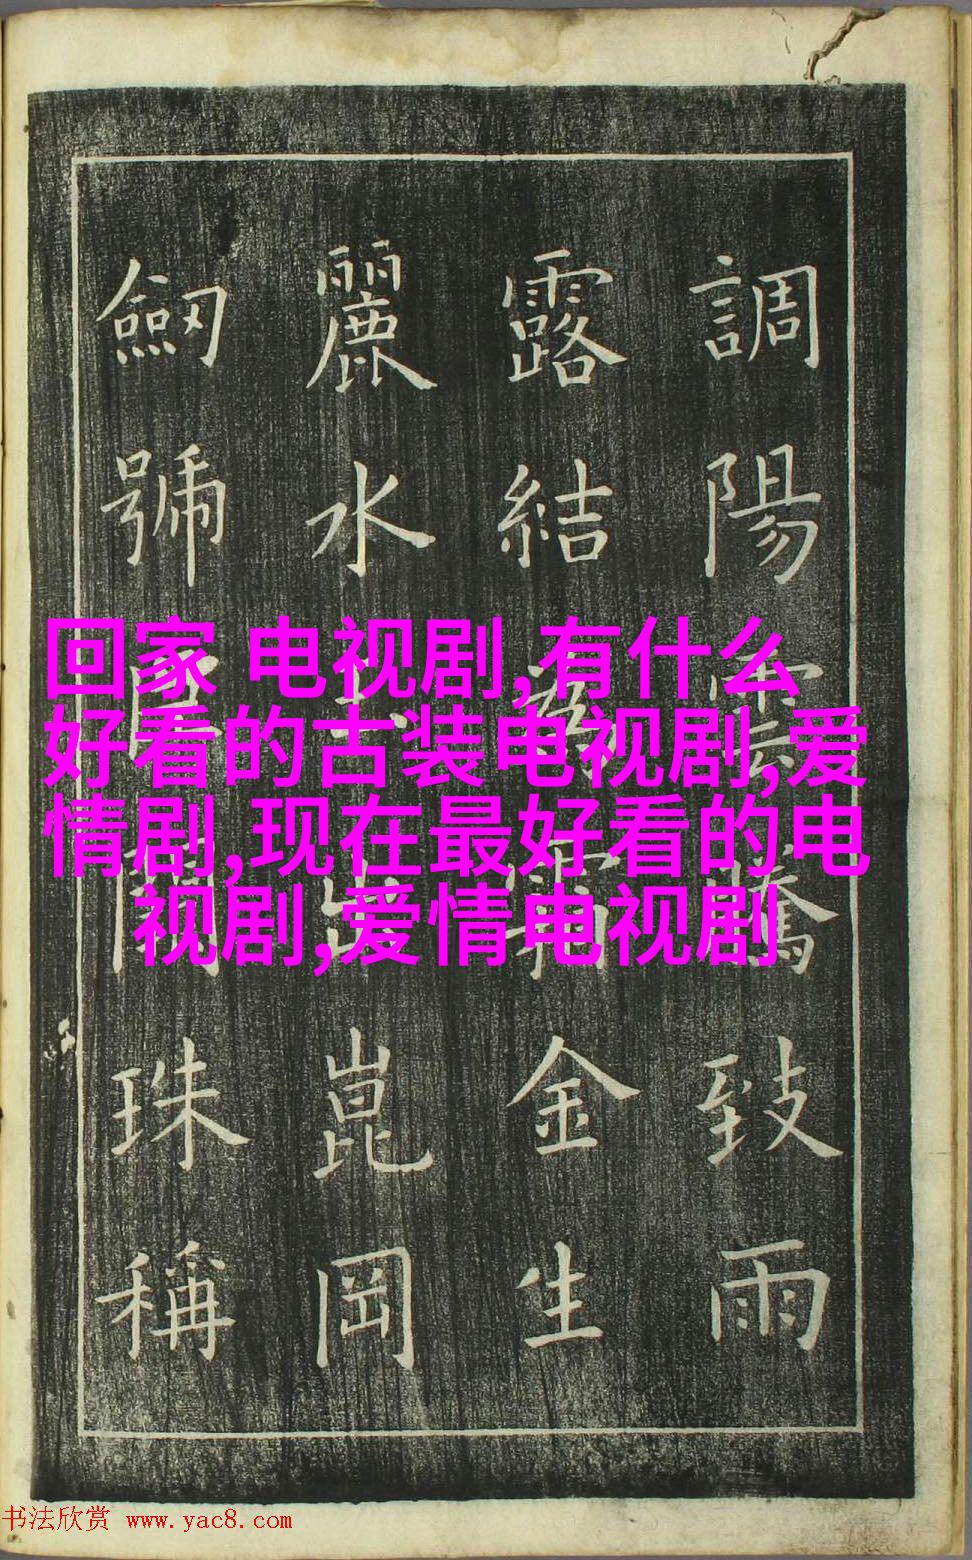 調陽雲騰致雨
露結霜金生
麗水玉出崑岡
劒號巨珠稱
回家 电视剧,有什么
好看的古装电视剧,爱
情剧,现在最好看的电
视剧,爱情电视剧
书法欣赏 www.yac8.com